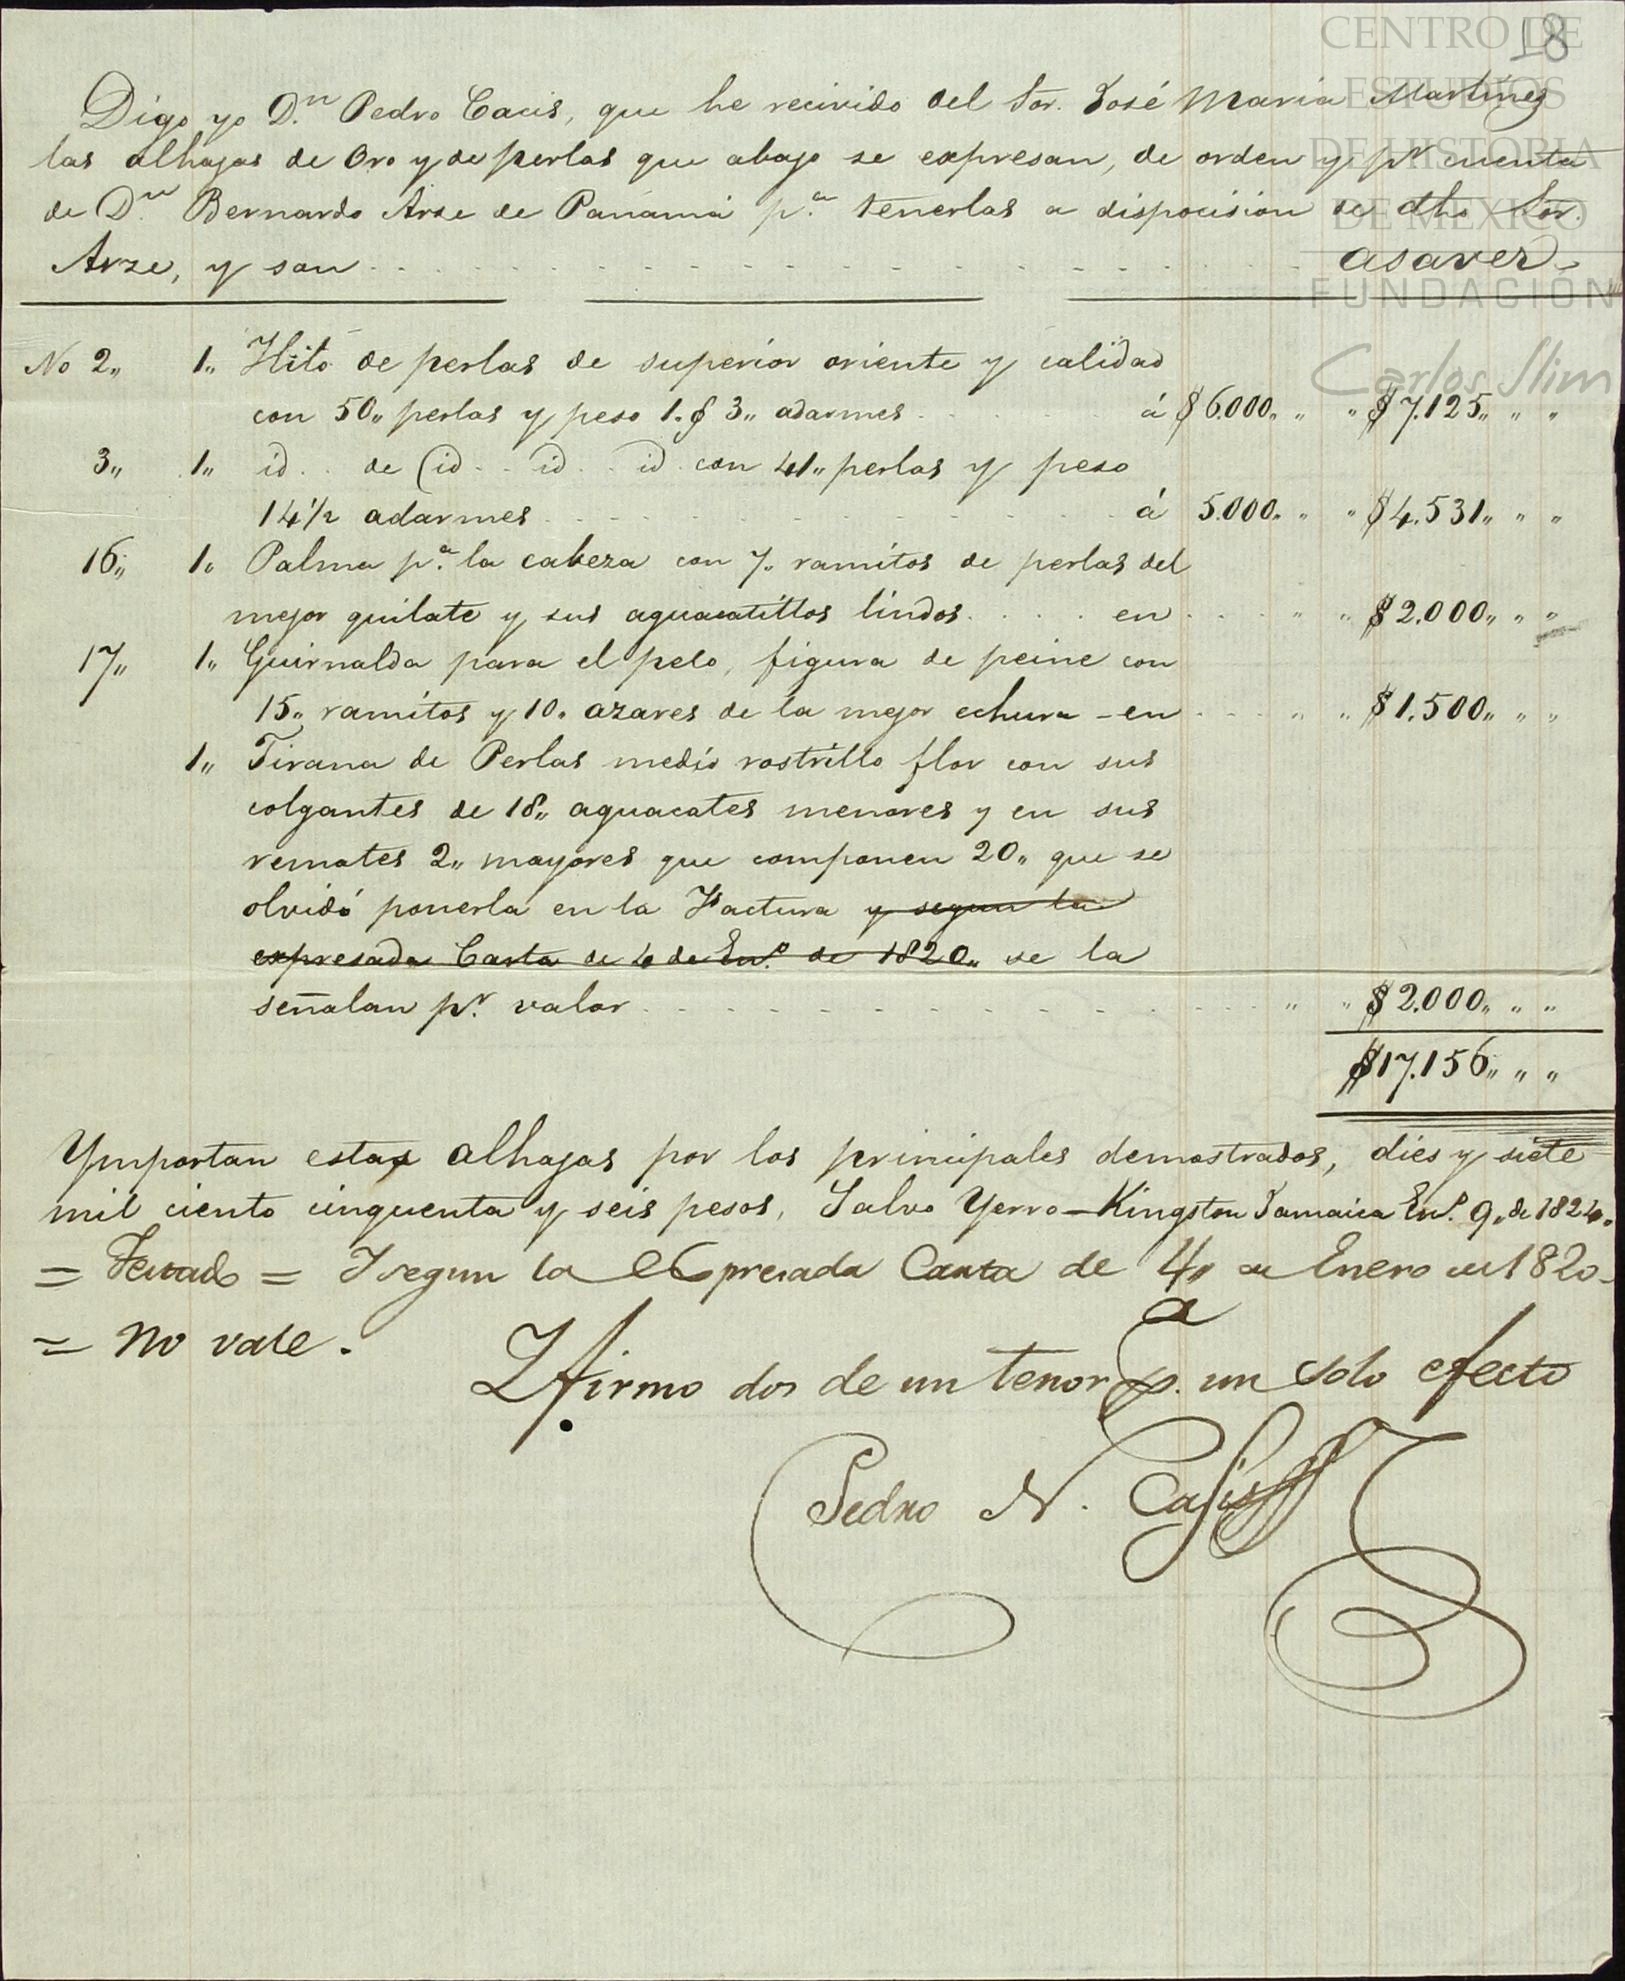 18
CENTRO DE
ESTUDIOS
DE HISTORIA
DE MEXICO
FUNDACIÓN
Carlos Slim
Digo yo D.n Pedro Cacis, que he recivido del Sor. José Maria Martinez
las alhajas de Oro y de perlas que abajo se expresan, de orden y pr cuenta
de D.n Bernardo Arze de Panamá p.a tenerlas a disposision de dho Sor.
Arze, y son . . . . . . . . . . . . . . . . . . asaver
No 2,, 1,, Hilo de perlas de superior oriente y calidad
con 50,, perlas y peso 1. 3,, adarmes . . . . . á $ 6.000,, ,, ,, $ 7.125,, ,, ,,
3,, 1,, id . . de id . . id . . id . con 41,, perlas y peso
14 1/2 adarmes . . . . . . . . . . . á 5.000,, ,, ,, $ 4.531,, ,, ,,
16,, 1,, Palma p.a la cabeza con 7,, ramitos de perlas del
mejor quilate y sus aguacatillos lindos . . . . en . . . ,, ,, $ 2.000,, ,, ,,
17,, 1,, Guirnalda para el pelo, figura de peine con
15,, ramitos y 10,, azares de la mejor echura - en . . . ,, ,, $ 1.500,, ,, ,,
1,, Tirana de Perlas medio rostrillo flor con sus
colgantes de 18,, aguacates menores y en sus
remates 2,, mayores que componen 20,, que se
olvidó ponerla en la Factura y segun la
expresada Carta de 4 de En.o de 1820,, se la
señalan pr. valor . . . . . . . . . . . . ,, ,, $ 2.000,, ,, ,,
$ 17.156,, ,, ,,
Ymportan estas alhajas por los principales demostrados, dies y siete
mil ciento cinquenta y seis pesos, Salvo Yerro - Kingston Jamaica En.o 9,, de 1824,,
= Testado = Y segun la expresada Carta de 4,, de Enero de 1820
= No vale .
Y firmo dos de un tenor p.a un solo efecto
Pedro N. Casis